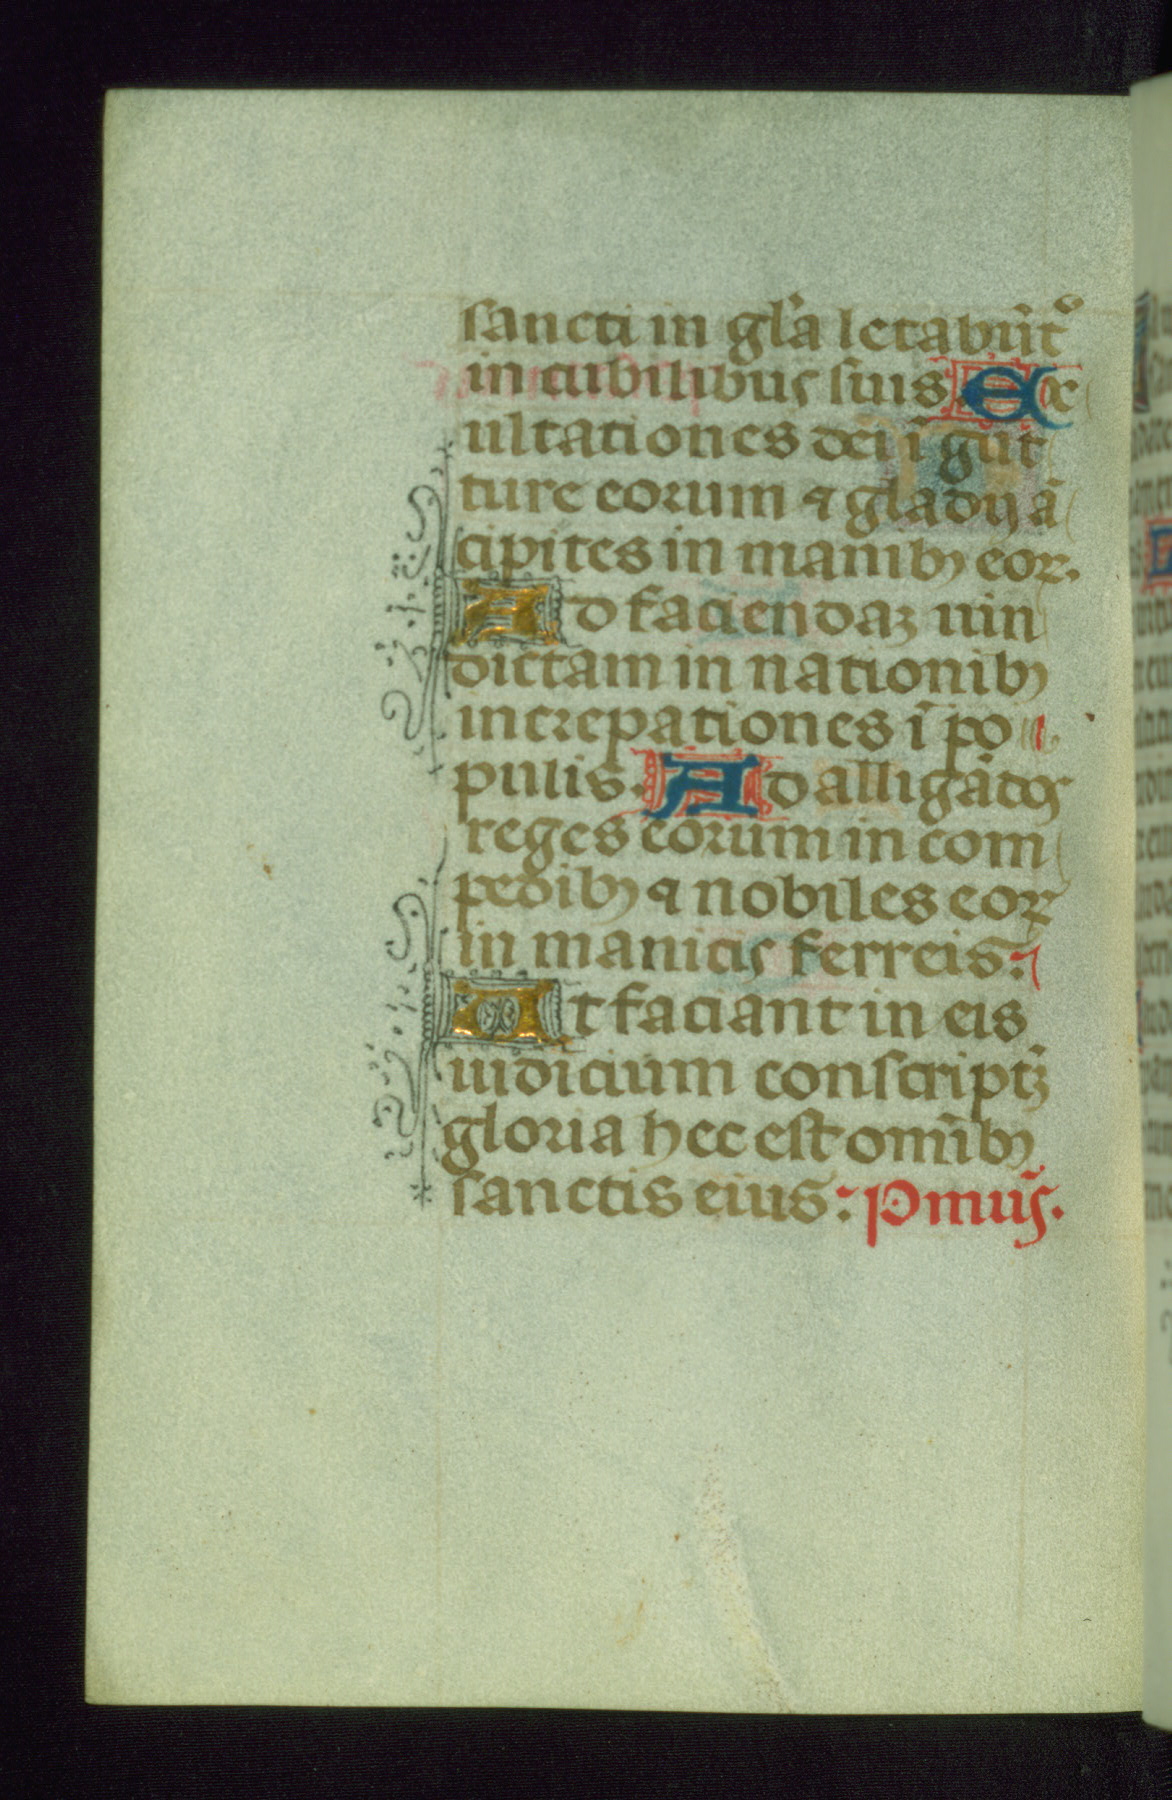 sancti in gl̃a letabũt᷑
in cubilibus suis. Ex
ultationes dei ĩ gut
ture eorum ⁊ gladij ã
cipites in manibꝫ eoꝝ.
Ad faciendaꝫ uin
dictam in nationibꝫ
increpationes ĩ po
pulis. Ad alligãdos
reges eorum in com
pedibꝫ ⁊ nobiles eoꝝ
in manicis ferreis.
Ut faciant in eis
iudicium conscriptꝫ̃
gloria hec est omĩbꝫ
sanctis eius: P̃mus̃.